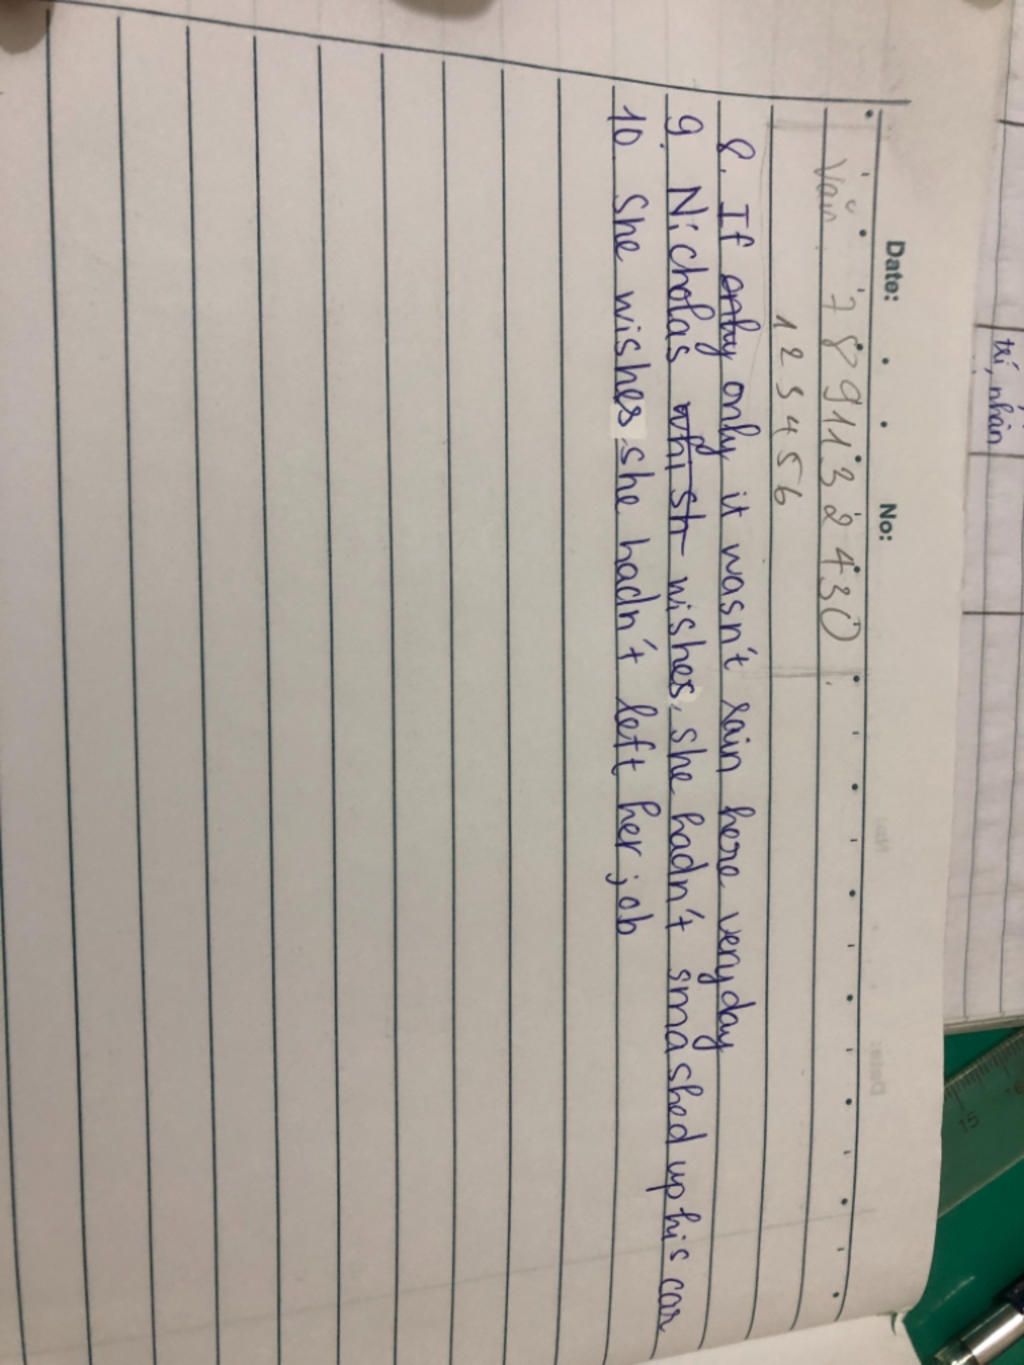 trí, nhân
Date: No:
Văn 7 8 9 11 3 2 4 3 0
1 2 3 4 5 6
8. If only it wasn't rain here veryday
9. Nicholas whish wishes she hadn't smashed up his car
10 She wishes she hadn't left her job
15